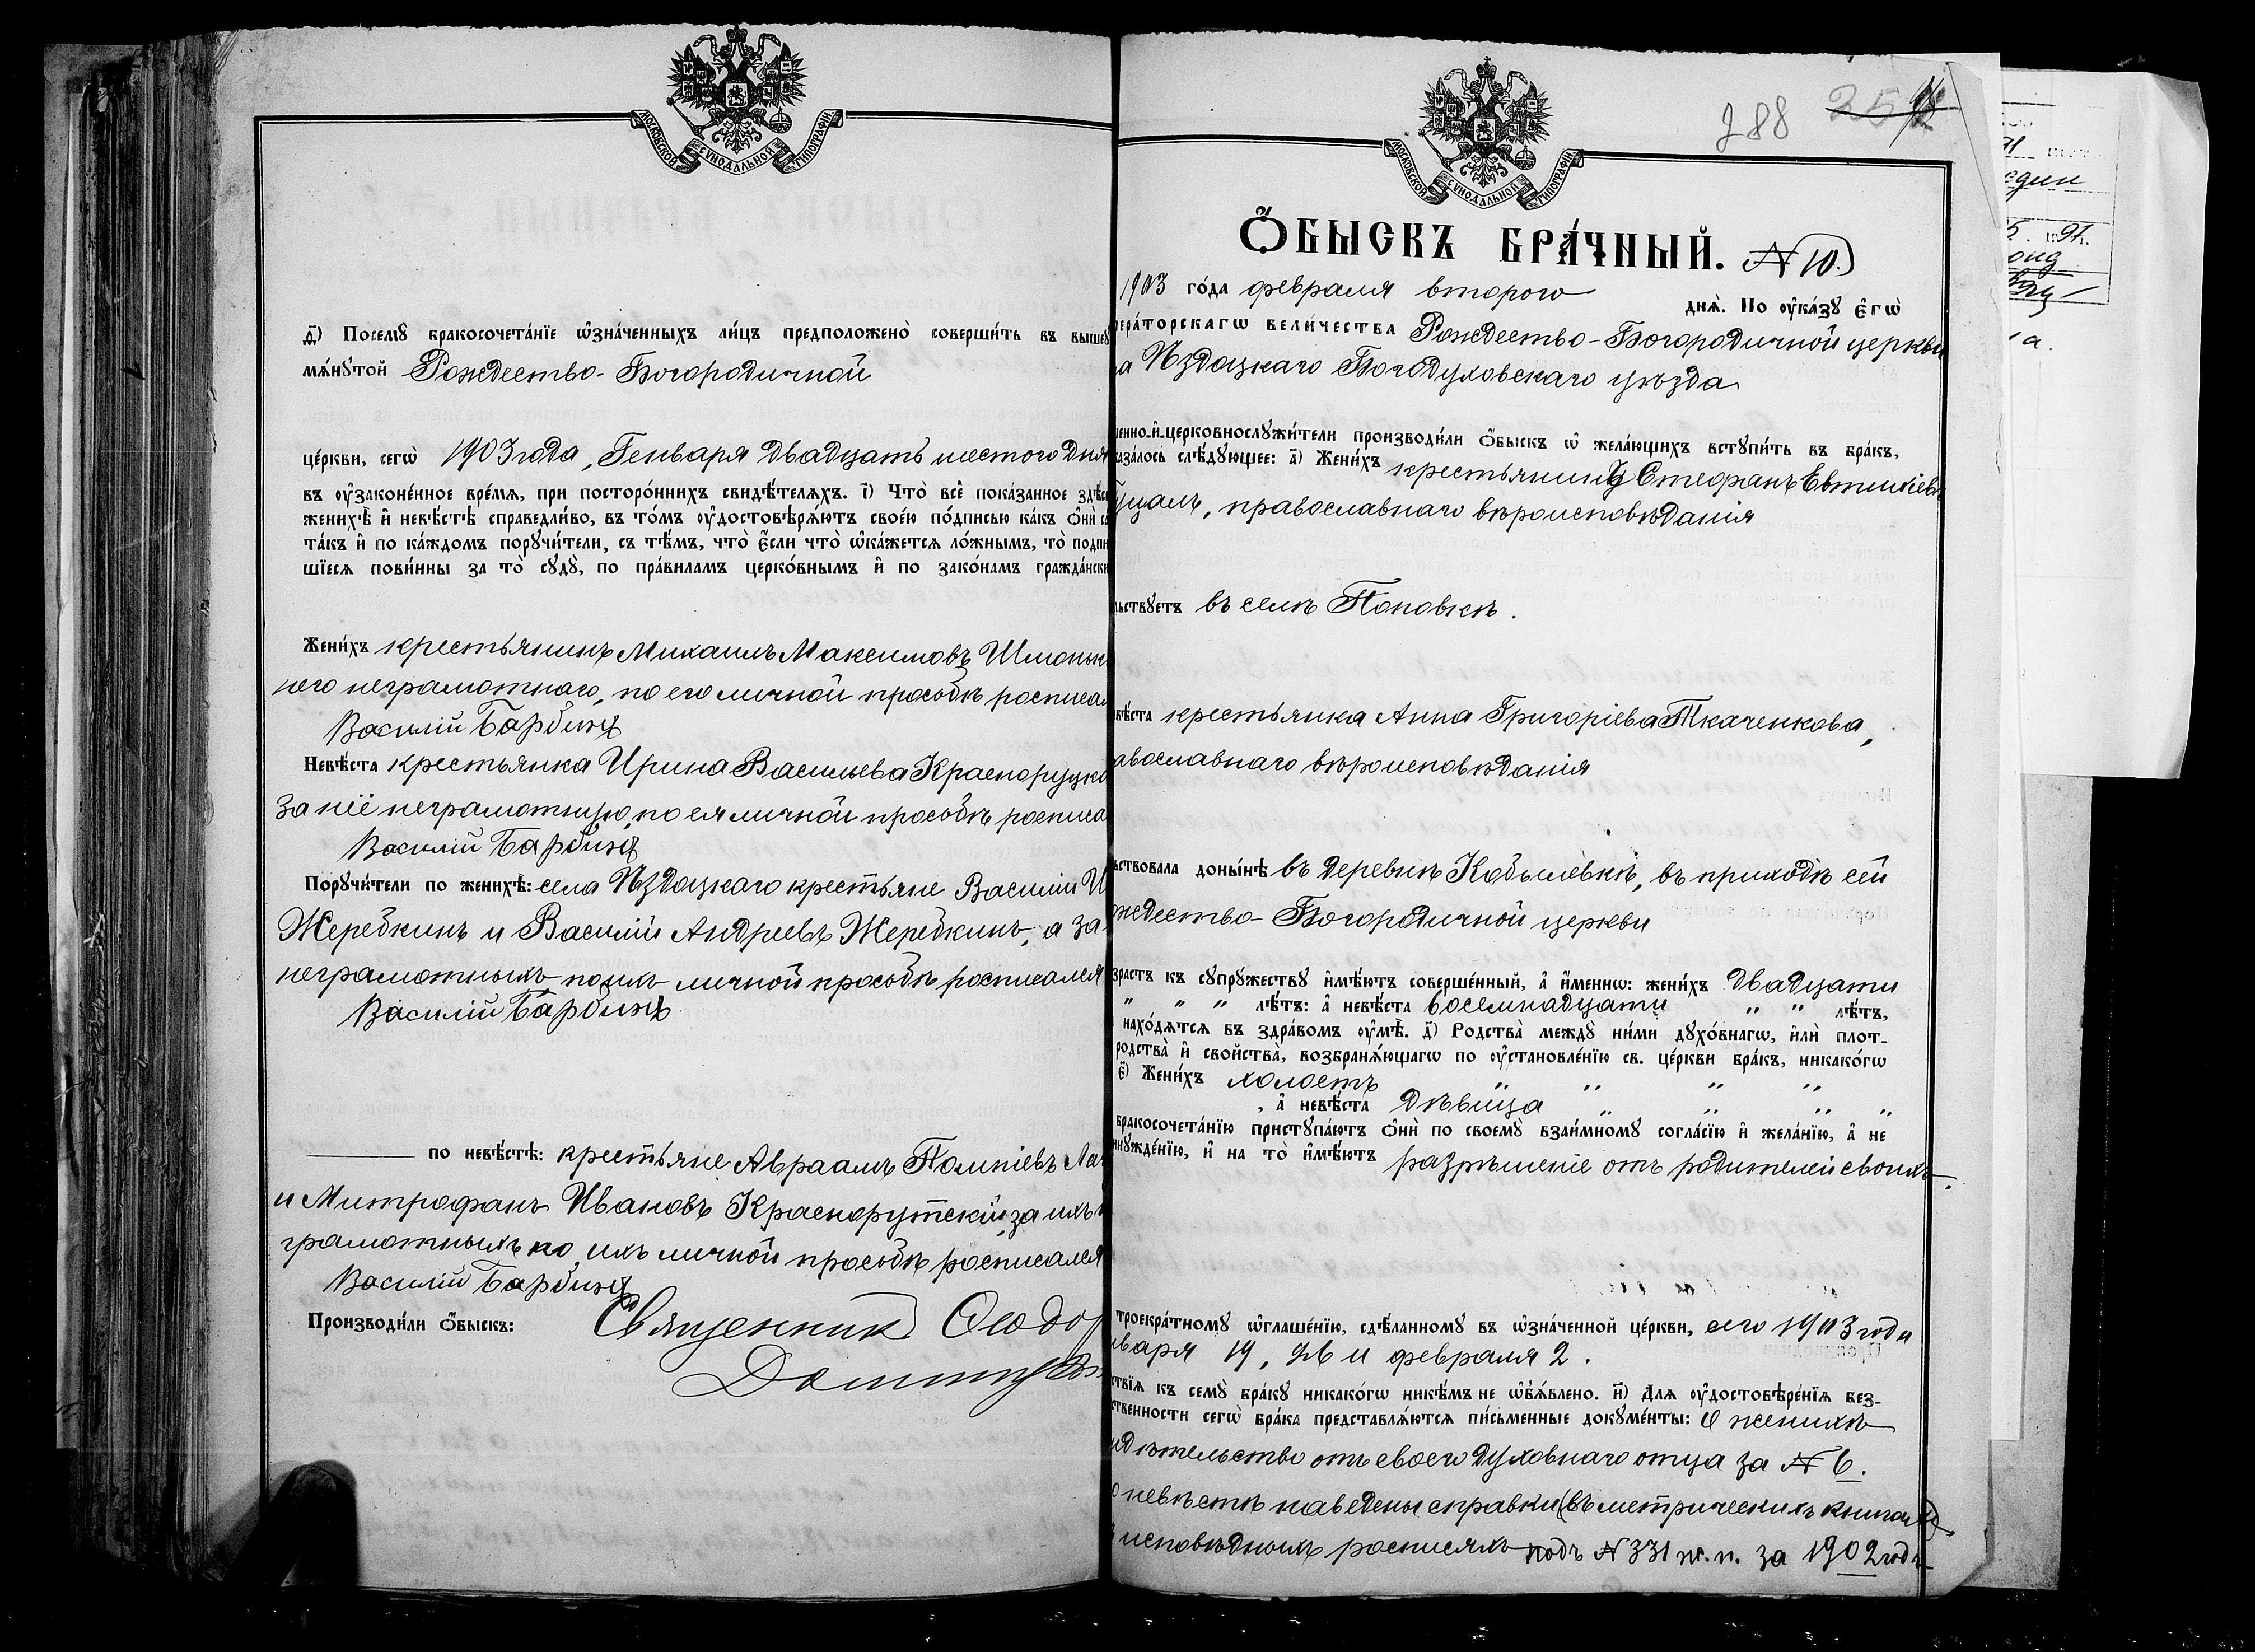 МОСКОВСКОЙ СѴНОДАЛЬНОЙ ТИПОГРАФІИ
ѳ҃) Посемꙋ̀ бракосочета́нїе ѡ҆зна́ченныхъ ли́цъ предположено̀ соверши́ть въ вышеꙋ
мѧ́нꙋтой Рождество-Богородичной
це́ркви, сегѡ̀ 1903 года, Генваря двадцать шестого дня
въ ᲂу҆законе́нное вре́мѧ, при посторо́ннихъ свидѣ́телѧхъ. і҃) Что̀ всѐ пока́занное здѣ́с
женихѣ̀ и҆ невѣ́стѣ справедли́во, въ то́мъ ᲂу҆достовѣрѧ́ютъ свое́ю по́дписью ка́къ ѻ҆нѝ са
та́къ и҆ по ка́ждомъ порꙋчи́тели, съ тѣ́мъ, что̀ є҆́сли что̀ ѡ҆ка́жетсѧ ло́жнымъ, то̀ подпи
шїесѧ пови́нны за то̀ сꙋдꙋ̀, по пра́виламъ церко́внымъ и҆ по зако́намъ гражда́нски
Жени́хъ крестьянинъ Михаилъ Максимовъ Шмоньк
него неграмотнаго, по его личной просьбѣ росписал
Василій Барбинъ
Невѣ́ста крестьянка Ирина Васильева Краснорутско
за неё неграмотную, по ея личной просьбѣ росписа
Василій Барбинъ
Порꙋчи́тели по женихѣ̀: села Пздоцкаго крестьяне Василій И
Жеребкинъ и Василій Андреевъ Жеребкинъ, а за
неграмотныхъ по ихъ личной просьбѣ росписался
Василій Барбинъ
по невѣ́стѣ: крестьяне Авраамъ
и Митрофанъ Ивановъ Краснорутскій, за ихъ н
грамотныхъ по ихъ личной просьбѣ росписался
Василій Барбинъ
Производи́ли ѻ҆́быскъ: Священникъ Ѳеодор
288 25
МОСКОВСКОЙ СѴНОДАЛЬНОЙ ТИПОГРАФІИ
Ѻ҆́БЫСКЪ БРА́ЧНЫЙ. № 10.
1903 го́да февраля второго днѧ̀. По ᲂу҆ка́зꙋ є҆гѡ̀
ера́торскагѡ вели́чества Рождество-Богородичной церкви
а Пздоцкаго Богодуховскаго уѣзда
енно-и҆-церковнослꙋжи́тели производи́ли ѻ҆́быскъ ѡ҆ жела́ющихъ встꙋпи́ть въ бра́къ,
аза́лось слѣ́дꙋющее: а҃) Жени́хъ крестьянинъ Стефанъ Евтихіев
цалъ, православнаго вѣроисповѣданія
ьствꙋетъ въ селѣ Поповкѣ.
вѣ́ста крестьянка Анна Григоріева Ткаченкова,
авославнаго вѣроисповѣданія
ьствовала доны́нѣ въ деревнѣ Кобылевкѣ, въ приходѣ сей
ждество-Богородичной церкви
зрастъ къ сꙋпрꙋжествꙋ и҆мѣ́ютъ соверше́нный, а҆ и҆́меннѡ: жени́хъ двадцати
" " " лѣ́тъ: а҆ невѣ́ста восемнадцати " " лѣ́тъ,
нахо́дѧтсѧ въ здра́вомъ ᲂу҆мѣ̀. д҃) Родства̀ междꙋ̀ ни́ми дꙋхо́внагѡ, и҆лѝ плот-
родства̀ и҆ сво́йства̀, возбранѧ́ющагѡ по ᲂу҆становле́нїю св. це́ркви бра́къ, никако́гѡ
є҃) Жени́хъ холостъ " " " "
, а҆ невѣ́ста дѣвица " " " "
бракосочета́нїю пристꙋпа́ютъ ѻ҆нѝ по своемꙋ̀ взаи́мномꙋ согла́сїю и҆ жела́нїю, а҆ не
инꙋжде́нїю, и҆ на то̀ и҆мѣ́ютъ разрѣшеніе отъ родителей своихъ.
троекра́тномꙋ ѡ҆глаше́нїю, сдѣ́ланномꙋ въ ѡ҆зна́ченной це́ркви, сего 1903 года
нваря 19, 26 и февраля 2.
ствїѧ къ семꙋ̀ бра́кꙋ никако́гѡ никѣ́мъ не ѡ҆бѧ́влено. и҃) Длѧ ᲂу҆достовѣре́нїѧ без-
ственности сегѡ̀ бра́ка представлѧ́ютсѧ пи́сьменные докꙋме́нты: О женихѣ
идѣтельство отъ своего духовнаго отца за № 6.
о невѣстѣ наведены справки (въ метрическихъ книгахъ)
исповѣдныхъ росписяхъ подъ № 331 ж. п. за 1902 годъ